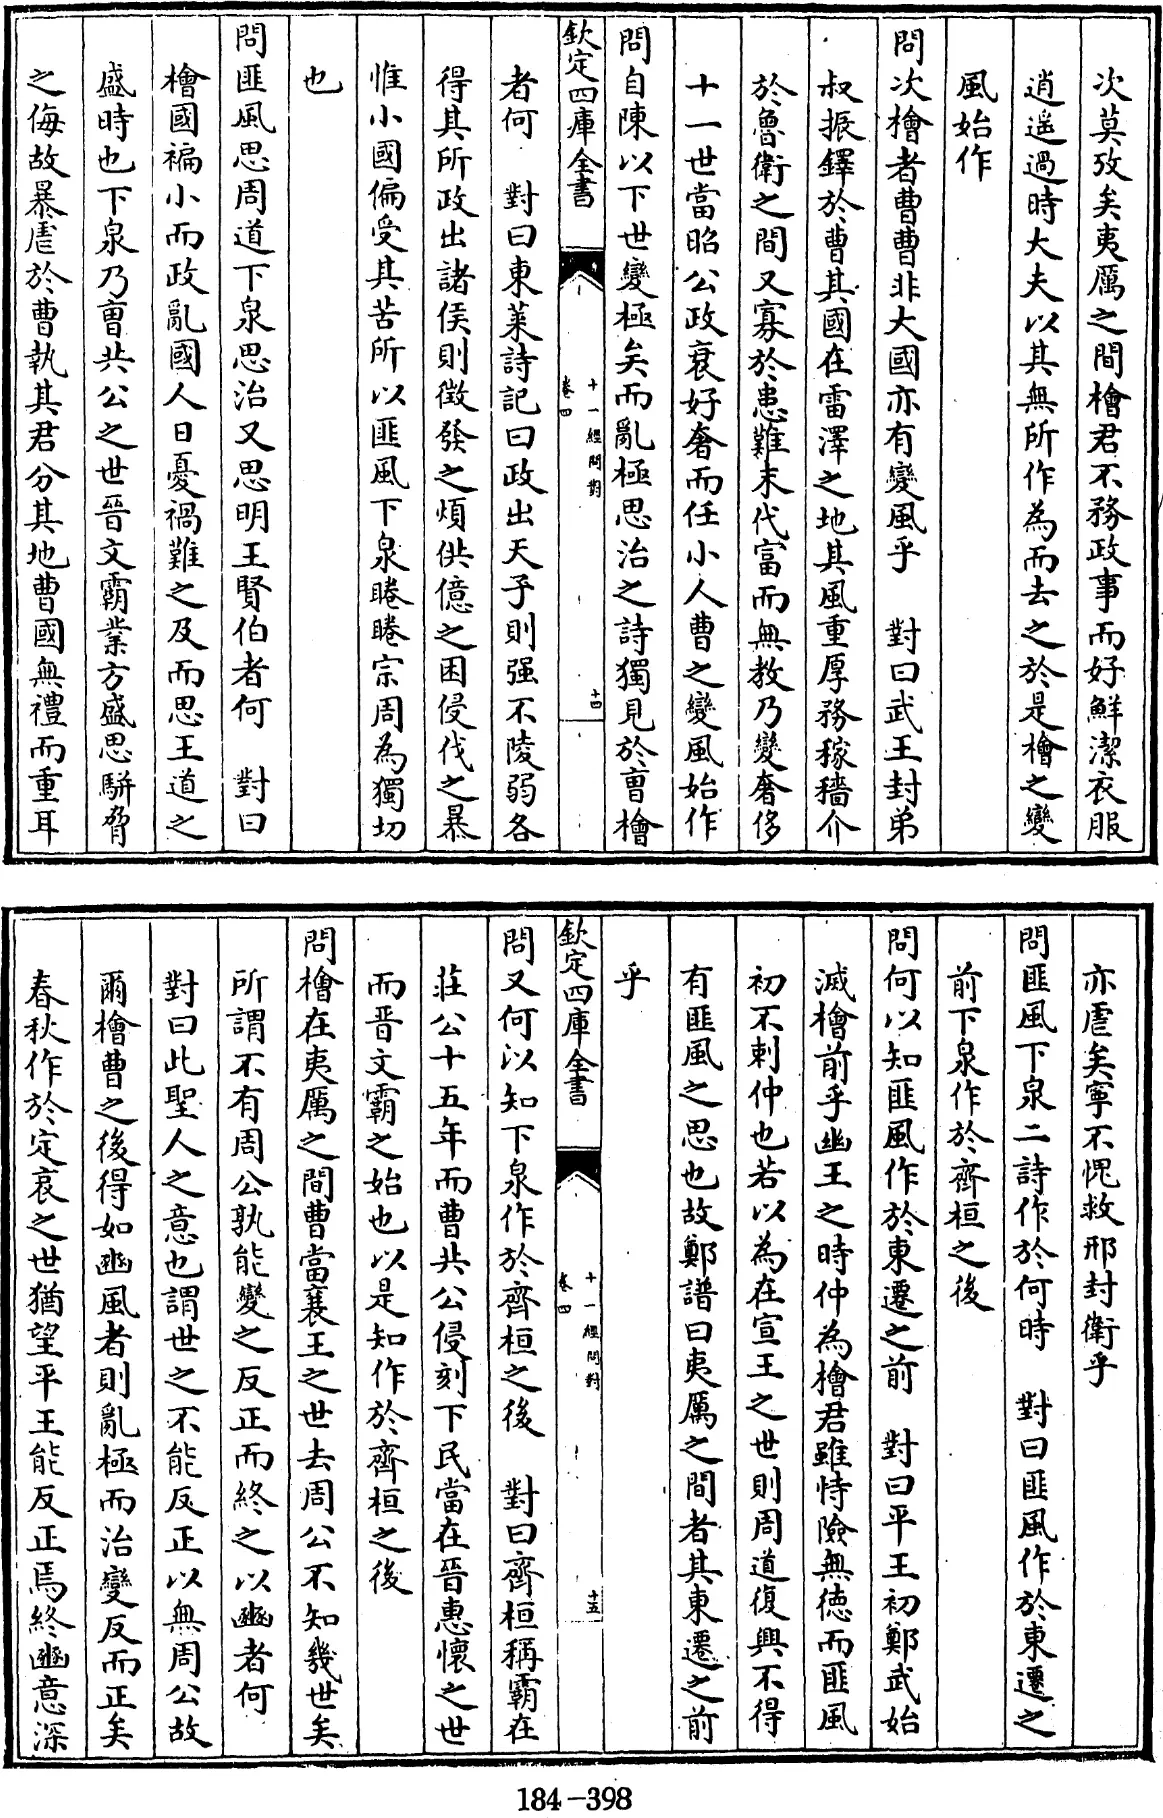 次莫攷矣夷厲之間檜君不務政事而好鮮潔衣服
逍遥遇時大夫以其無所作為而去之於是檜之變
風始作
問次檜者曹曹非大國亦有變風乎　對曰武王封弟
叔振鐸於曹其國在雷澤之地其風重厚務稼穡介
於魯衛之間又寡於患難末代富而無教乃變奢侈
十一世當昭公政衰好奢而任小人曹之變風始作
問自陳以下世變極矣而亂極思治之詩獨見於曹檜
欽定四庫全書
十一經問對
卷四
十四
者何　對曰東萊詩記曰政出天子則强不陵弱各
得其所政出諸侯則徵發之煩供億之困侵伐之暴
惟小國偏受其苦所以匪風下泉睠睠宗周為獨切
也
問匪風思周道下泉思治又思明王賢伯者何　對曰
檜國褊小而政亂國人日憂禍難之及而思王道之
盛時也下泉乃曹共公之世晉文霸業方盛思駢脅
之侮故暴虐於曹執其君分其地曹國無禮而重耳
亦虐矣寧不愧救邢封衛乎
問匪風下泉二詩作於何時　對曰匪風作於東遷之
前下泉作於齊桓之後
問何以知匪風作於東遷之前　對曰平王初鄭武始
滅檜前乎幽王之時仲為檜君雖恃險無德而匪風
初不刺仲也若以為在宣王之世則周道復興不得
有匪風之思也故鄭譜曰夷厲之間者其東遷之前
乎
欽定四庫全書
十一經問對
卷四
十五
問又何以知下泉作於齊桓之後　對曰齊桓稱霸在
莊公十五年而曹共公侵刻下民當在晉惠懷之世
而晉文霸之始也以是知作於齊桓之後
問檜在夷厲之間曹當襄王之世去周公不知幾世矣
所謂不有周公孰能變之反正而終之以豳者何
對曰此聖人之意也謂世之不能反正以無周公故
爾檜曹之後得如豳風者則亂極而治變反而正矣
春秋作於定哀之世猶望平王能反正焉終豳意深
184-398